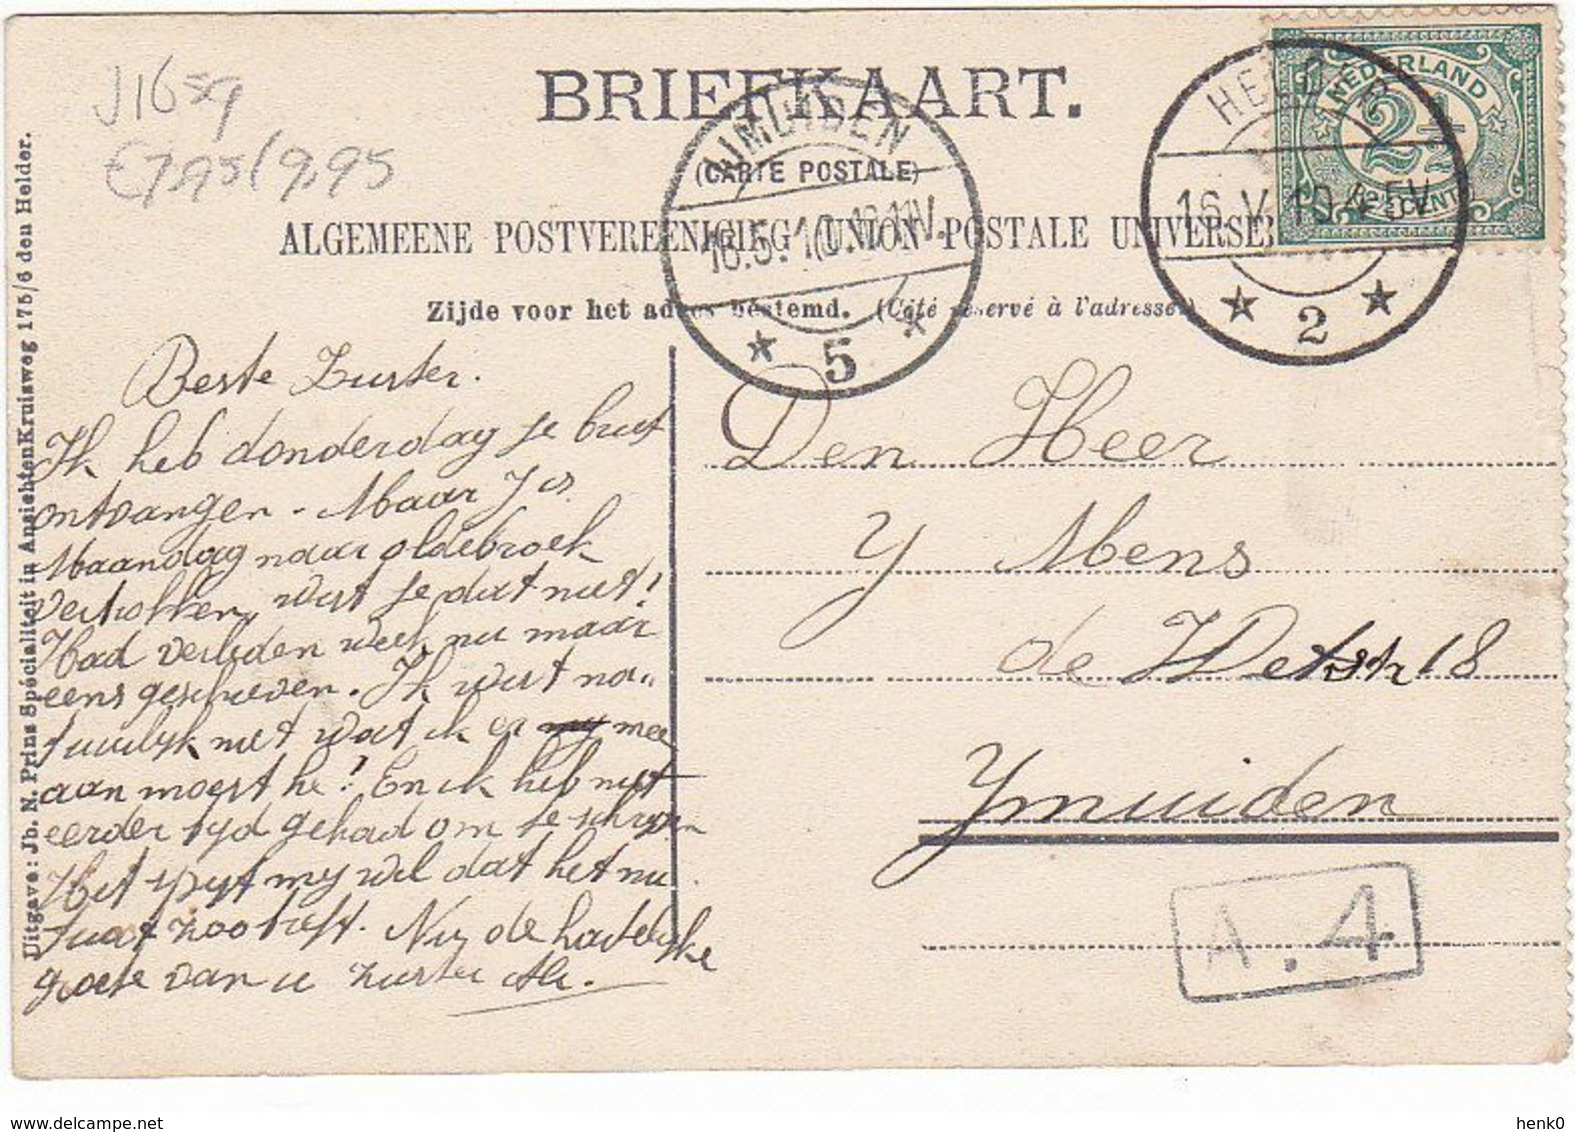 J1624
€7,95/9,95
BRIEFKAART.
(CARTE POSTALE)
ALGEMEENE POSTVEREENIGING (UNION POSTALE UNIVERSE
Zijde voor het adres bestemd. (Côté réservé à l'adresse.)
NEDERLAND
2½
CENT
HELDER
16.V.10 4-5V
2
IJMUIDEN
16.5.10. 10-11V.
5
Uitgave: Jb. N. Prins Spécialiteit in Ansichten Kruisweg 175/6 den Helder.
Beste Zuster.
Ik heb donderdag je brief
ontvangen. Maar J is
Maandag naar oldebroek
vertrokken, wist je dat niet!
Had verleden week nu maar
eens geschreven. Ik wist na„
tuurlijk niet wat ik er my mee
aan moest he! En ik heb niet
eerder tijd gehad om je schrijven
Het spijt mij wel dat het nu
juist zoo treft. Nu de hartelijke
groete van u zuster
Den Heer
Y Mens
de Wetstr 18
Ymuiden
A.4
henk0